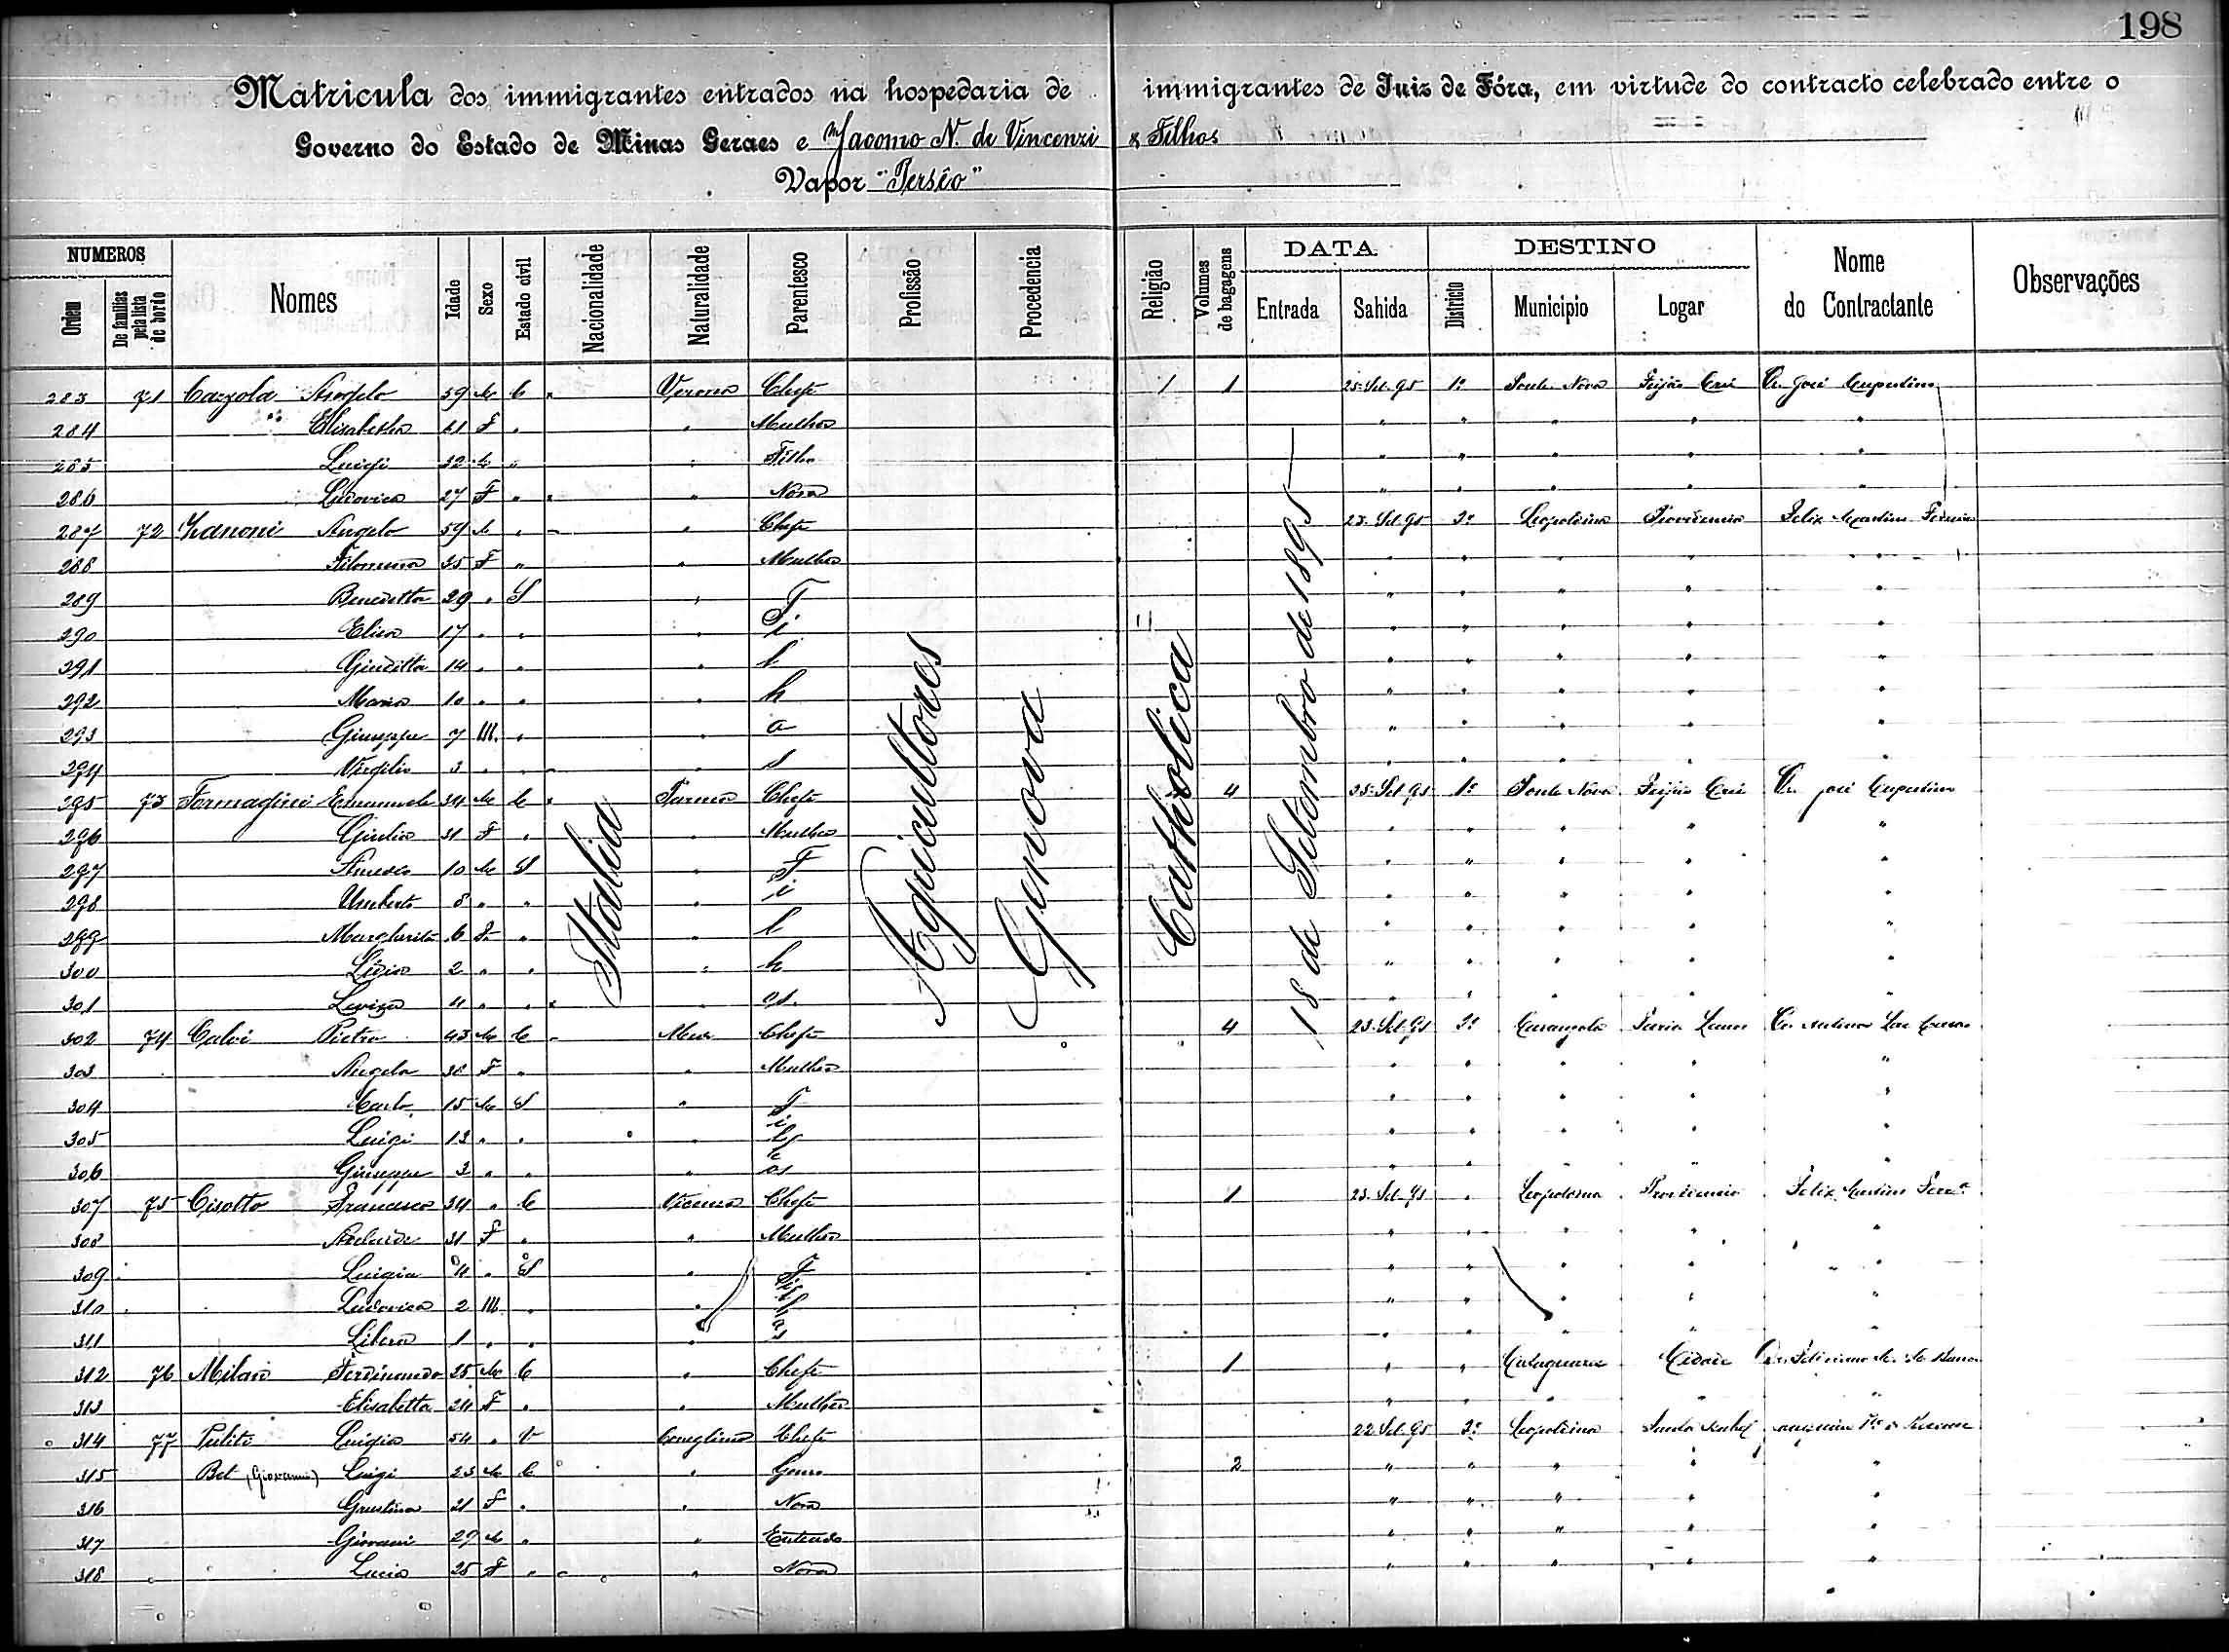 198
Matricula dos immigrantes entrados na hospedaria de immigrantes de Juiz de Fóra, em virtude do contracto celebrado entre o
Governo do Estado de Minas Geraes e Jacomo N. de Vincenzi & Filhos
Vapor "Persêo"
NUMEROS DATA DESTINO
Ordem De familias pela lista de bordo Nomes Idade Sexo Estado civil Nacionalidade Naturalidade Parentesco Profissão Procedencia Religião Volumes de bagagens Entrada Sahida Districto Municipio Logar Nome do Contractante Observações
Italia
Agricultores
Genova
Catholica
18 de Setembro de 1895
283 71 Cazzola Angelo 59 M C Verona Chefe 1 1 25 Set. 95 1º Ponte Nova José Cupertino
284 " Elisabetha 61 F " " Mulher " " " " "
285 Luigi 32 M " " Filho " " " " "
286 Ludovica 27 F " " Nora " " " " "
287 72 Zanoni Angelo 59 M " " Chefe 23 Set. 95 3º Leopoldina Providencia Felix Martins Ferreira
288 Filomena 35 F " " Mulher " " " " "
289 Benedetta 29 " S " F " " " " "
290 Elisa 17 " " " i " " " " "
291 Giuditta 14 " " " l " " " " "
292 Maria 10 " " " h " " " " "
293 Giuseppe 7 M. " " o " " " " "
294 Virgilio 3 " " " s " " " " "
295 73 Formagini Emanuele 34 M C Parma Chefe 4 25 Set 95 1º Ponte Nova José Cupertino
296 Giulia 31 F " " Mulher " " " " "
297 Amedeo 10 M S " F " " " " "
298 Umberto 8 " " " i " " " " "
299 Margharita 6 F " " l " " " " "
300 Lidia 2 " " " h " " " " "
301 Luviza 4 " " " os. " " " " "
302 74 Calvi Pietro 43 M C Chefe 4 23 Set 95 3º Carangola Faria Lemos
303 Angela 38 F " " Mulher " " " " "
304 Carlo 15 M S " F " " " " "
305 Luigi 13 " " " il " " " " "
306 Giuseppe 3 " " " hos " " " " "
307 75 Cisotto Francesco 34 " C Vicenza Chefe 1 23 Set 95 " Leopoldina Providencia Felix Martins Ferrª
308 Adelaide 31 F " " Mulher " " " " "
309 Luigia 4 " S " F " " " " "
310 Ludovica 2 M " " il " " " " "
311 Libera 1 " " " " " " " "
312 76 Milan Ferdinando 25 M C " Chefe 1 " " Cataguazes Cidade
313 Elisabetta 24 F " " Mulher " " " " "
314 77 Luigia 54 " V Chefe 22 Set 95 3º Leopoldina Santa Izabel
315 Bet (Giovanni) Luigi 23 M C " Genro 2 " " " " "
316 21 F " " Nora " " " " "
317 Giovani 29 M " " Enteado " " " " "
318 Lucia 25 F " " Nora " " " " "